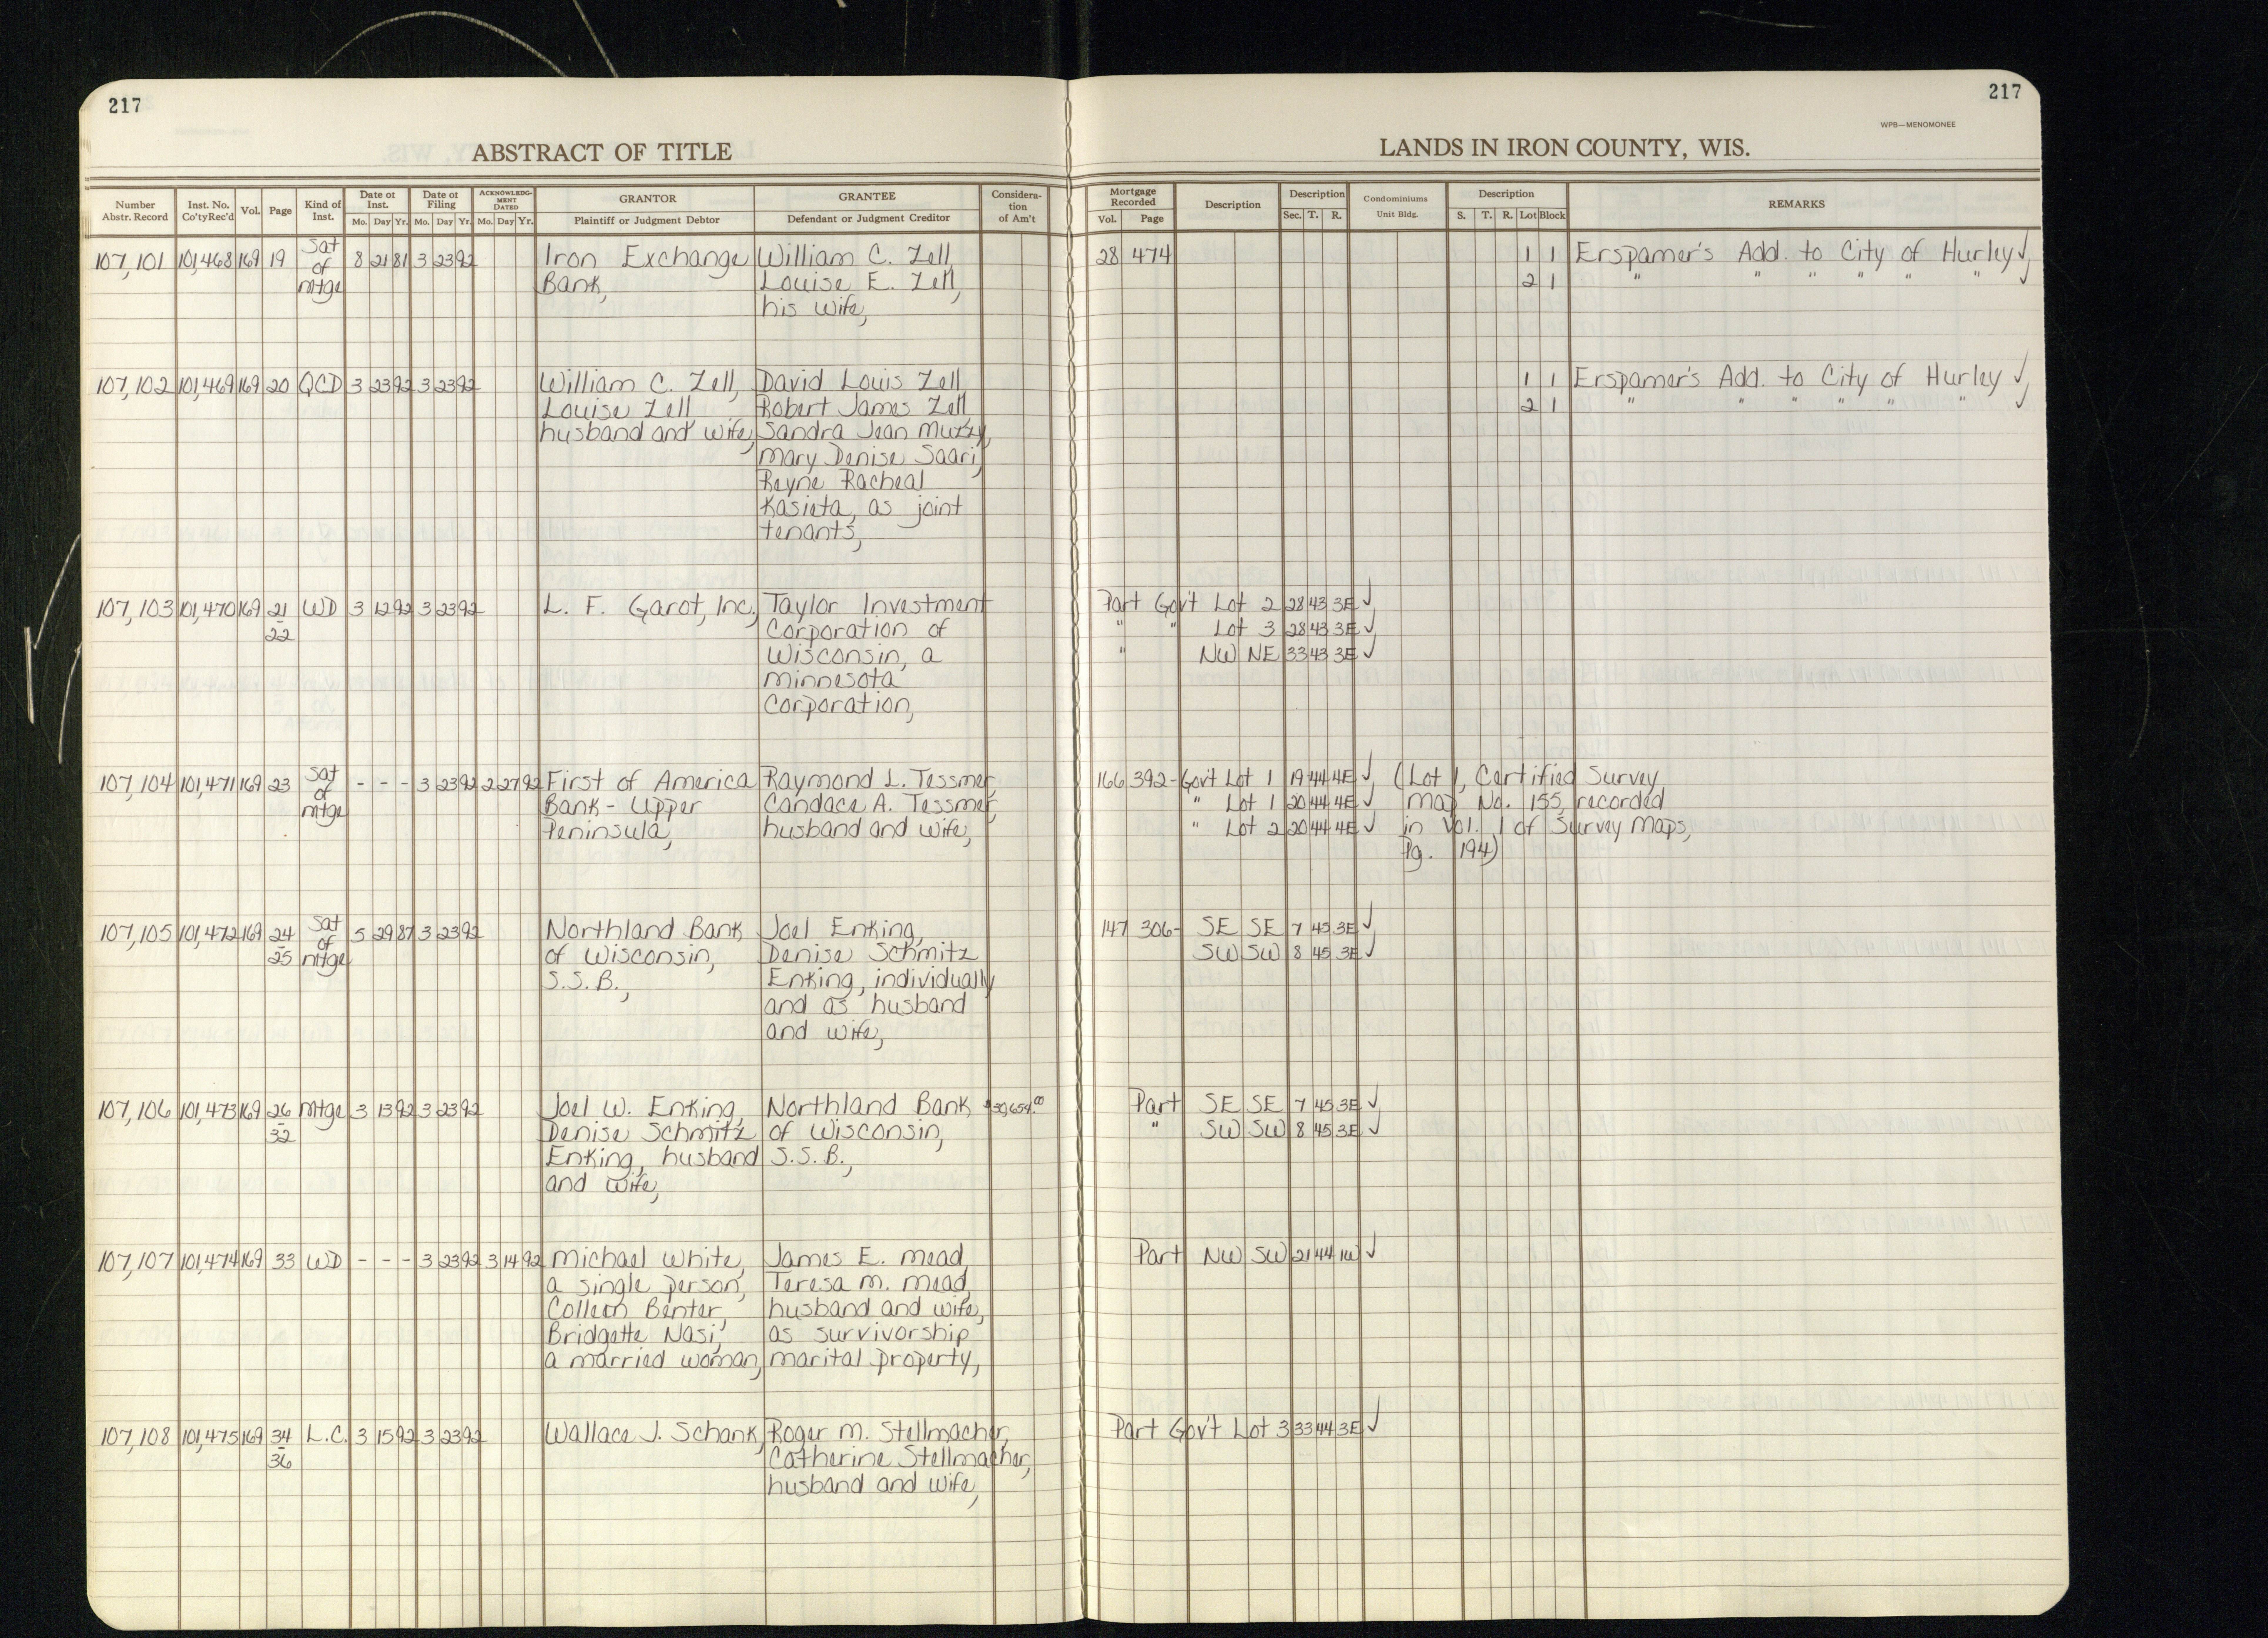 217
217
WPB—MENOMONEE
ABSTRACT OF TITLE
LANDS IN IRON COUNTY, WIS.
Number Abstr. Record Inst. No. Co'ty Rec'd Vol. Page Kind of Inst. Date of Inst. Mo. Day Yr. Date of Filing Mo. Day Yr. ACKNOWLEDGMENT DATED Mo. Day Yr. GRANTOR Plaintiff or Judgment Debtor GRANTEE Defendant or Judgment Creditor Consideration of Am't Mortgage Recorded Vol. Page Description Description Sec. T. R. Condominiums Unit Bldg. Description S. T. R. Lot Block REMARKS
107,101 101,468 169 19 Sat of mtge 8 21 81 3 23 92 Iron Exchange William C. Zell, 28 474 1 1 Erspamer's Add. to City of Hurley ✓,
Bank, Louise E. Zell, 2 1 " " " " " " ✓
his wife,
107,102 101,469 169 20 QCD 3 23 92 3 23 92 William C. Zell, David Louis Zell, 1 1 Erspamer's Add. to City of Hurley ✓,
Louise Zell Robert James Zell, 2 1 " " " " " " ✓
husband and wife, Sandra Jean Muzzy,
Mary Denise Saari,
Reyne Racheal
Kasieta, as joint
tenants,
107,103 101,470 169 21-22 WD 3 12 92 3 23 92 L. F. Garot, Inc., Taylor Investment Part Gov't Lot 2 28 43 3E ✓,
Corporation of " " Lot 3 28 43 3E ✓,
Wisconsin, a " NW NE 33 43 3E ✓
Minnesota
Corporation,
107,104 101,471 169 23 Sat of mtge - - - 3 23 92 2 27 92 First of America Raymond L. Tessmer, 166 392- Gov't Lot 1 19 44 4E ✓, (Lot 1, Certified Survey
Bank - Upper Candace A. Tessmer, " Lot 1 20 44 4E ✓ Map No. 155, recorded
Peninsula, husband and wife, " Lot 2 20 44 4E ✓ in Vol. 1 of Survey Maps,
Pg. 194)
107,105 101,472 169 24-25 Sat of mtge 5 29 87 3 23 92 Northland Bank Joel Enking, 147 306- SE SE 7 45 3E ✓,
of Wisconsin, Denise Schmitz SW SW 8 45 3E ✓
S.S.B., Enking, individually
and as husband
and wife,
107,106 101,473 169 26-32 Mtge 3 13 92 3 23 92 Joel W. Enking, Northland Bank Part SE SE 7 45 3E ✓,
Denise Schmitz of Wisconsin, " SW SW 8 45 3E ✓
Enking, husband S.S.B.,
and wife,
107,107 101,474 169 33 WD - - - 3 23 92 3 14 92 Michael White, James E. Mead, Part NW SW 21 44 1W ✓
a single person, Teresa M. Mead,
Colleen Benter, husband and wife,
Bridgette Nasi, as survivorship
a married woman, marital property,
107,108 101,475 169 34-36 L.C. 3 15 92 3 23 92 Wallace J. Schank, Roger M. Stellmacher, Part Gov't Lot 3 33 44 3E ✓
Catherine Stellmacher,
husband and wife,